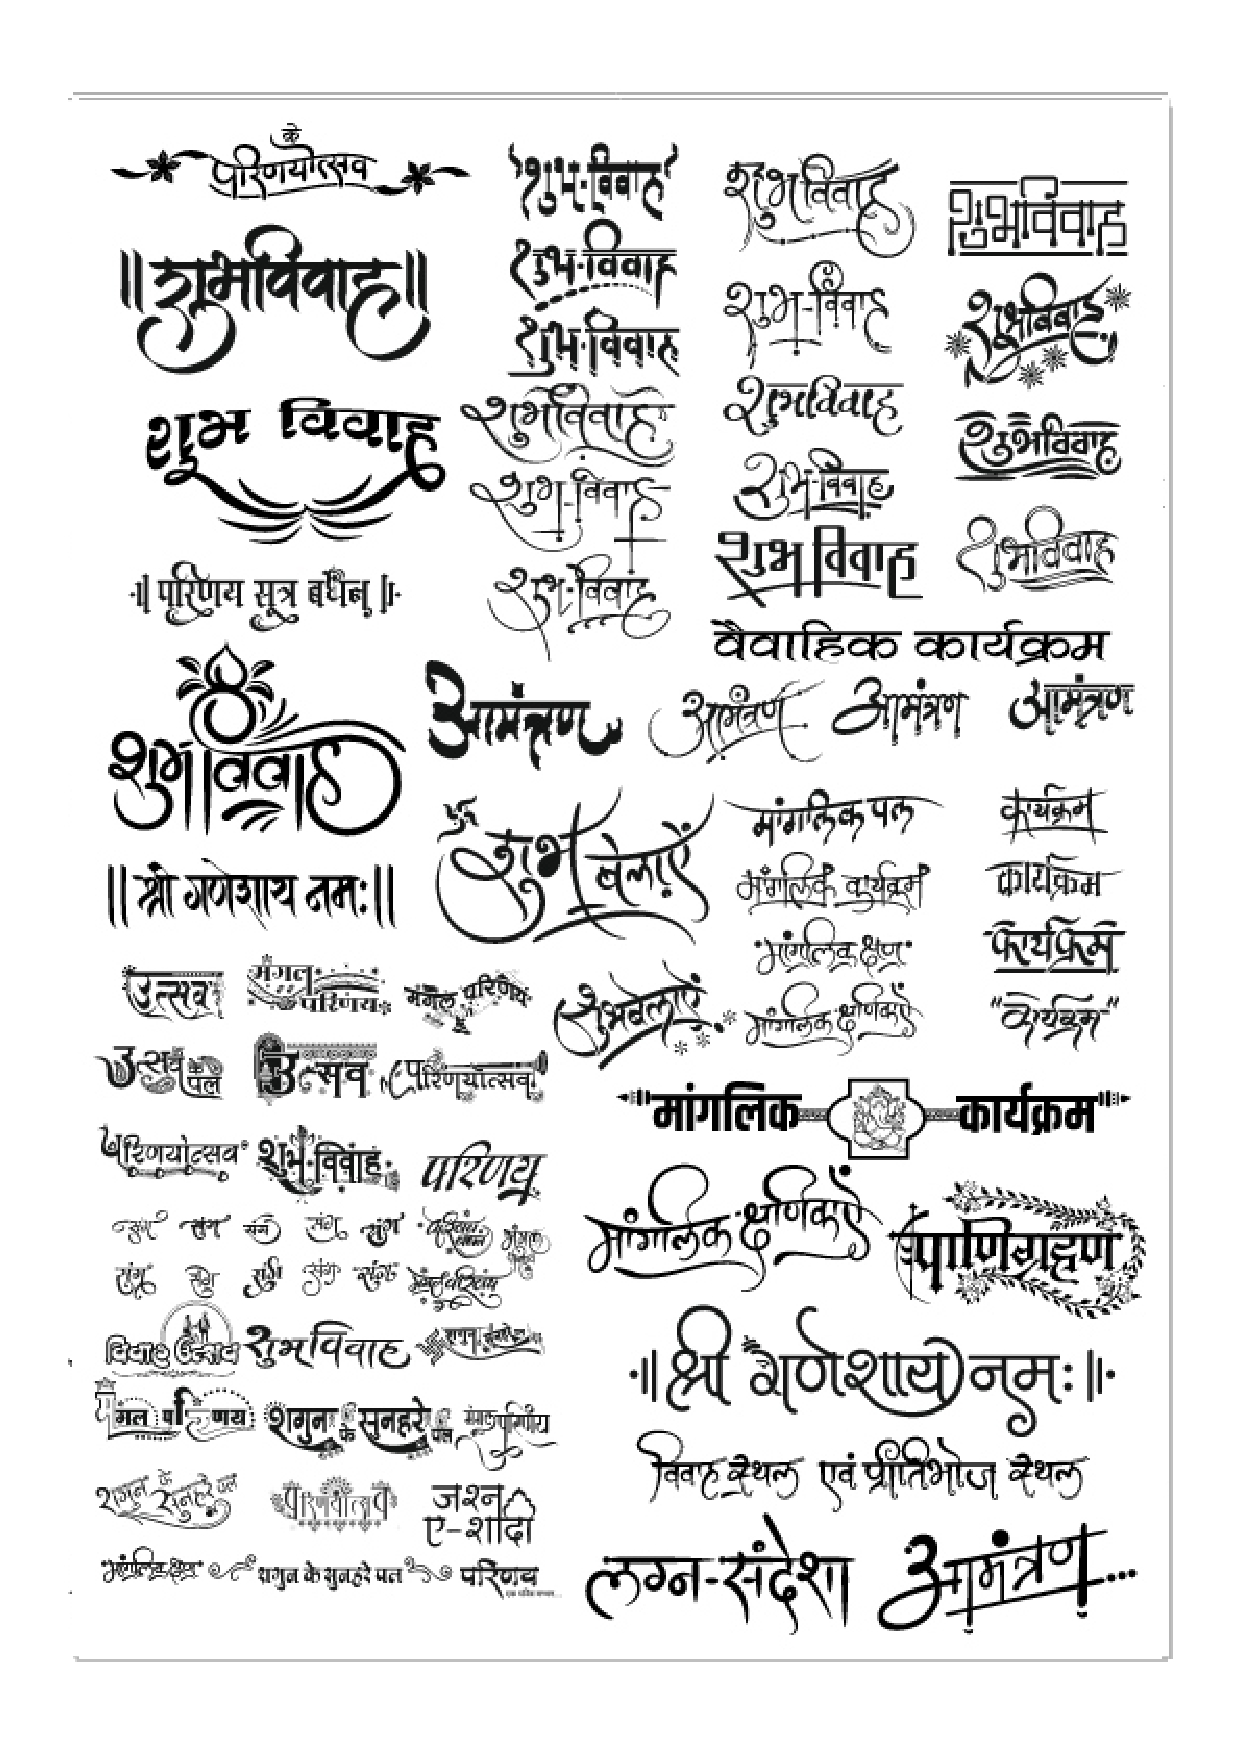 के
परिणयोत्सव
॥ शुभविवाह ॥
शुभ विवाह
॥ परिणय सूत्र बंधन ॥
शुभ विवाह
॥ श्री गणेशाय नमः ॥
शुभ-विवाह
शुभ-विवाह
शुभ-विवाह
शुभविवाह
शुभ-विवाह
शुभ-विवाह
शुभविवाह
शुभ-विवाह
शुभविवाह
शुभ-विवाह
शुभ विवाह
शुभविवाह
शुभविवाह
शुभविवाह
शुभविवाह
वैवाहिक कार्यक्रम
आमंत्रण
आमंत्रण
आमंत्रण
आमंत्रण
शुभ बेलाएँ
मांगलिक पल
कार्यक्रम
मांगलिक कार्यक्रम
कार्यक्रम
मांगलिक क्षण
कार्यक्रम
शुभबेलाएँ
मांगलिक क्षणिकाएँ
"कार्यक्रम"
उत्सव
मंगल परिणय
मंगल परिणय
उत्सव के पल
उत्सव
परिणयोत्सव
परिणयोत्सव
शुभ-विवाह
परिणय
संग
संग
संग
संग
संग
संग
संग
संग
संग
विवाह उत्सव
शुभविवाह
मंगल परिणय
शगुन के सुनहरे पल
मंगल परिणय
शगुन के सुनहरे पल
परिणयोत्सव
जश्न
ए-शादी
मांगलिक क्षण
शगुन के सुनहरे पल
परिणय
मांगलिक कार्यक्रम
मांगलिक क्षणिकाएँ
पाणिग्रहण
॥ श्री गणेशाय नमः ॥
विवाह स्थल एवं प्रीतिभोज स्थल
लग्न-संदेश
आमंत्रण...